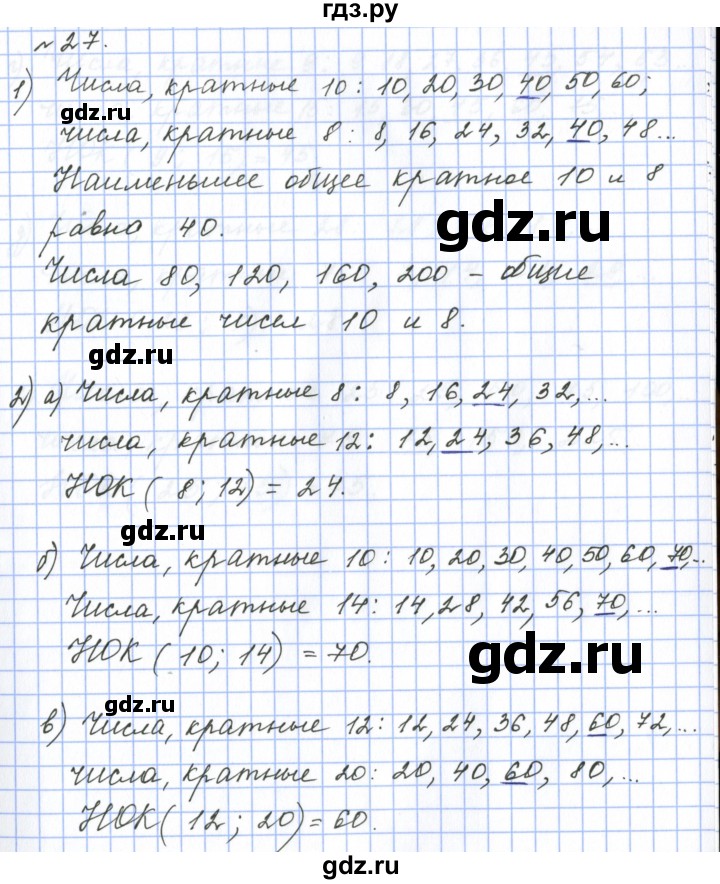 гдз.ру
№ 27.
1) Числа, кратные 10: 10, 20, 30, 40, 50, 60;
gdz.ru
числа, кратные 8: 8, 16, 24, 32, 40, 48...
Наименьшее общее кратное 10 и 8
равно 40.
gdz.ru
Числа 80, 120, 160, 200 – общие
кратные чисел 10 и 8.
gdz.ru
2) а) Числа, кратные 8: 8, 16, 24, 32,...
числа, кратные 12: 12, 24, 36, 48,...
НОК (8; 12) = 24.
gdz.ru
б) Числа, кратные 10: 10, 20, 30, 40, 50, 60, 70,..
Числа, кратные 14: 14, 28, 42, 56, 70, ...
НОК (10; 14) = 70.
gdz.ru
gdz.ru
в) Числа, кратные 12: 12, 24, 36, 48, 60, 72,...
числа, кратные 20: 20, 40, 60, 80, ...
НОК (12; 20) = 60.
gdz.ru